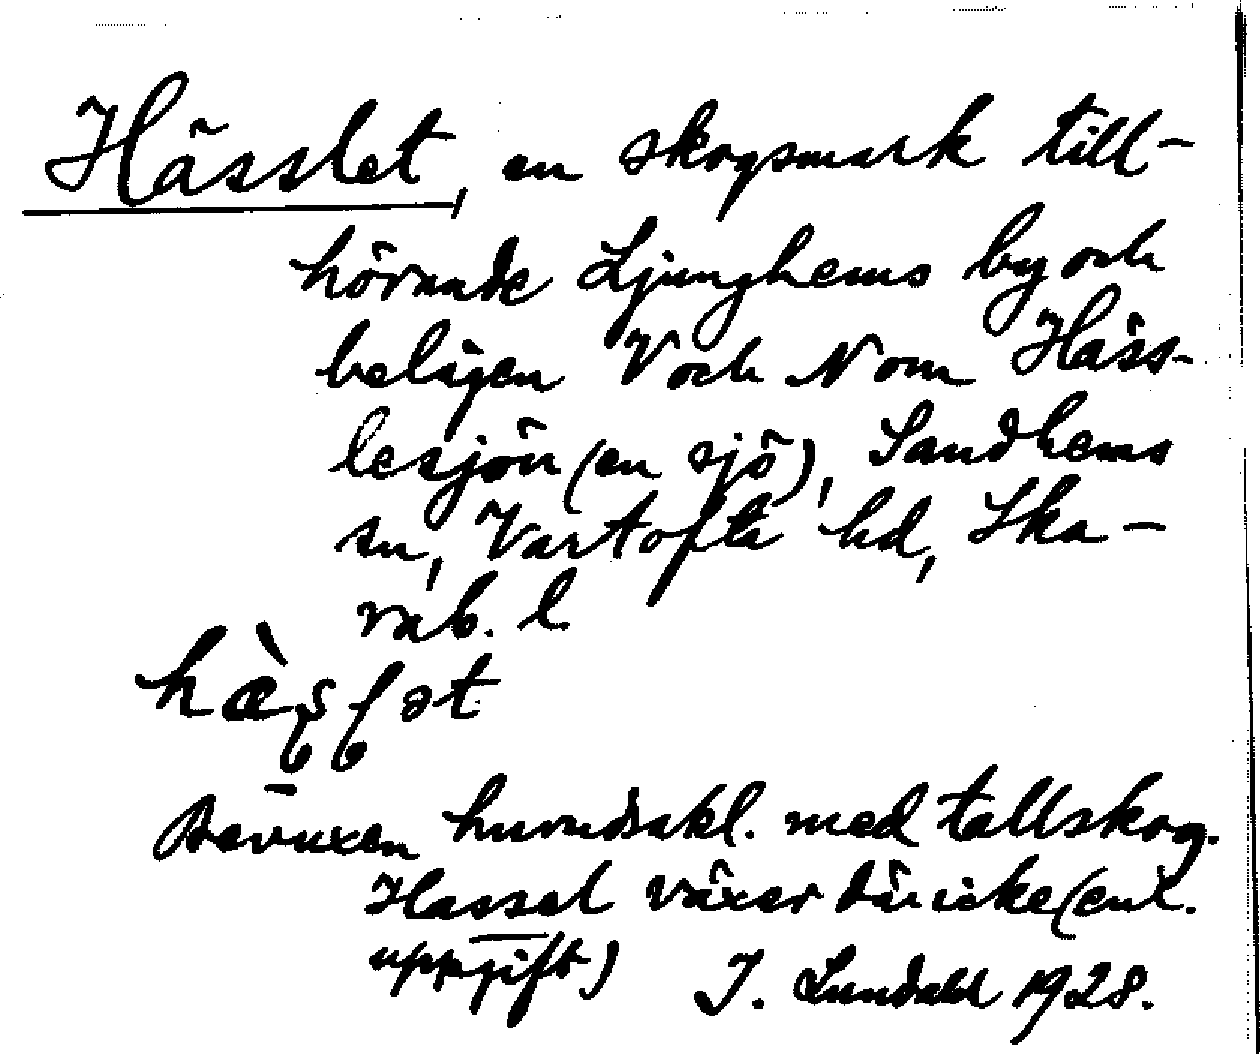 Hässlet, en skogsmark till-
hörande Ljunghems by och
belägen V och N om Häss-
lesjön (en sjö), Sandhems
sn, Vartofta hd, Ska-
rab. l
Bevuxen huvudsakl. med tallskog.
Hassel växer där icke (enl.
uppgift) J. Lundahl 1928.